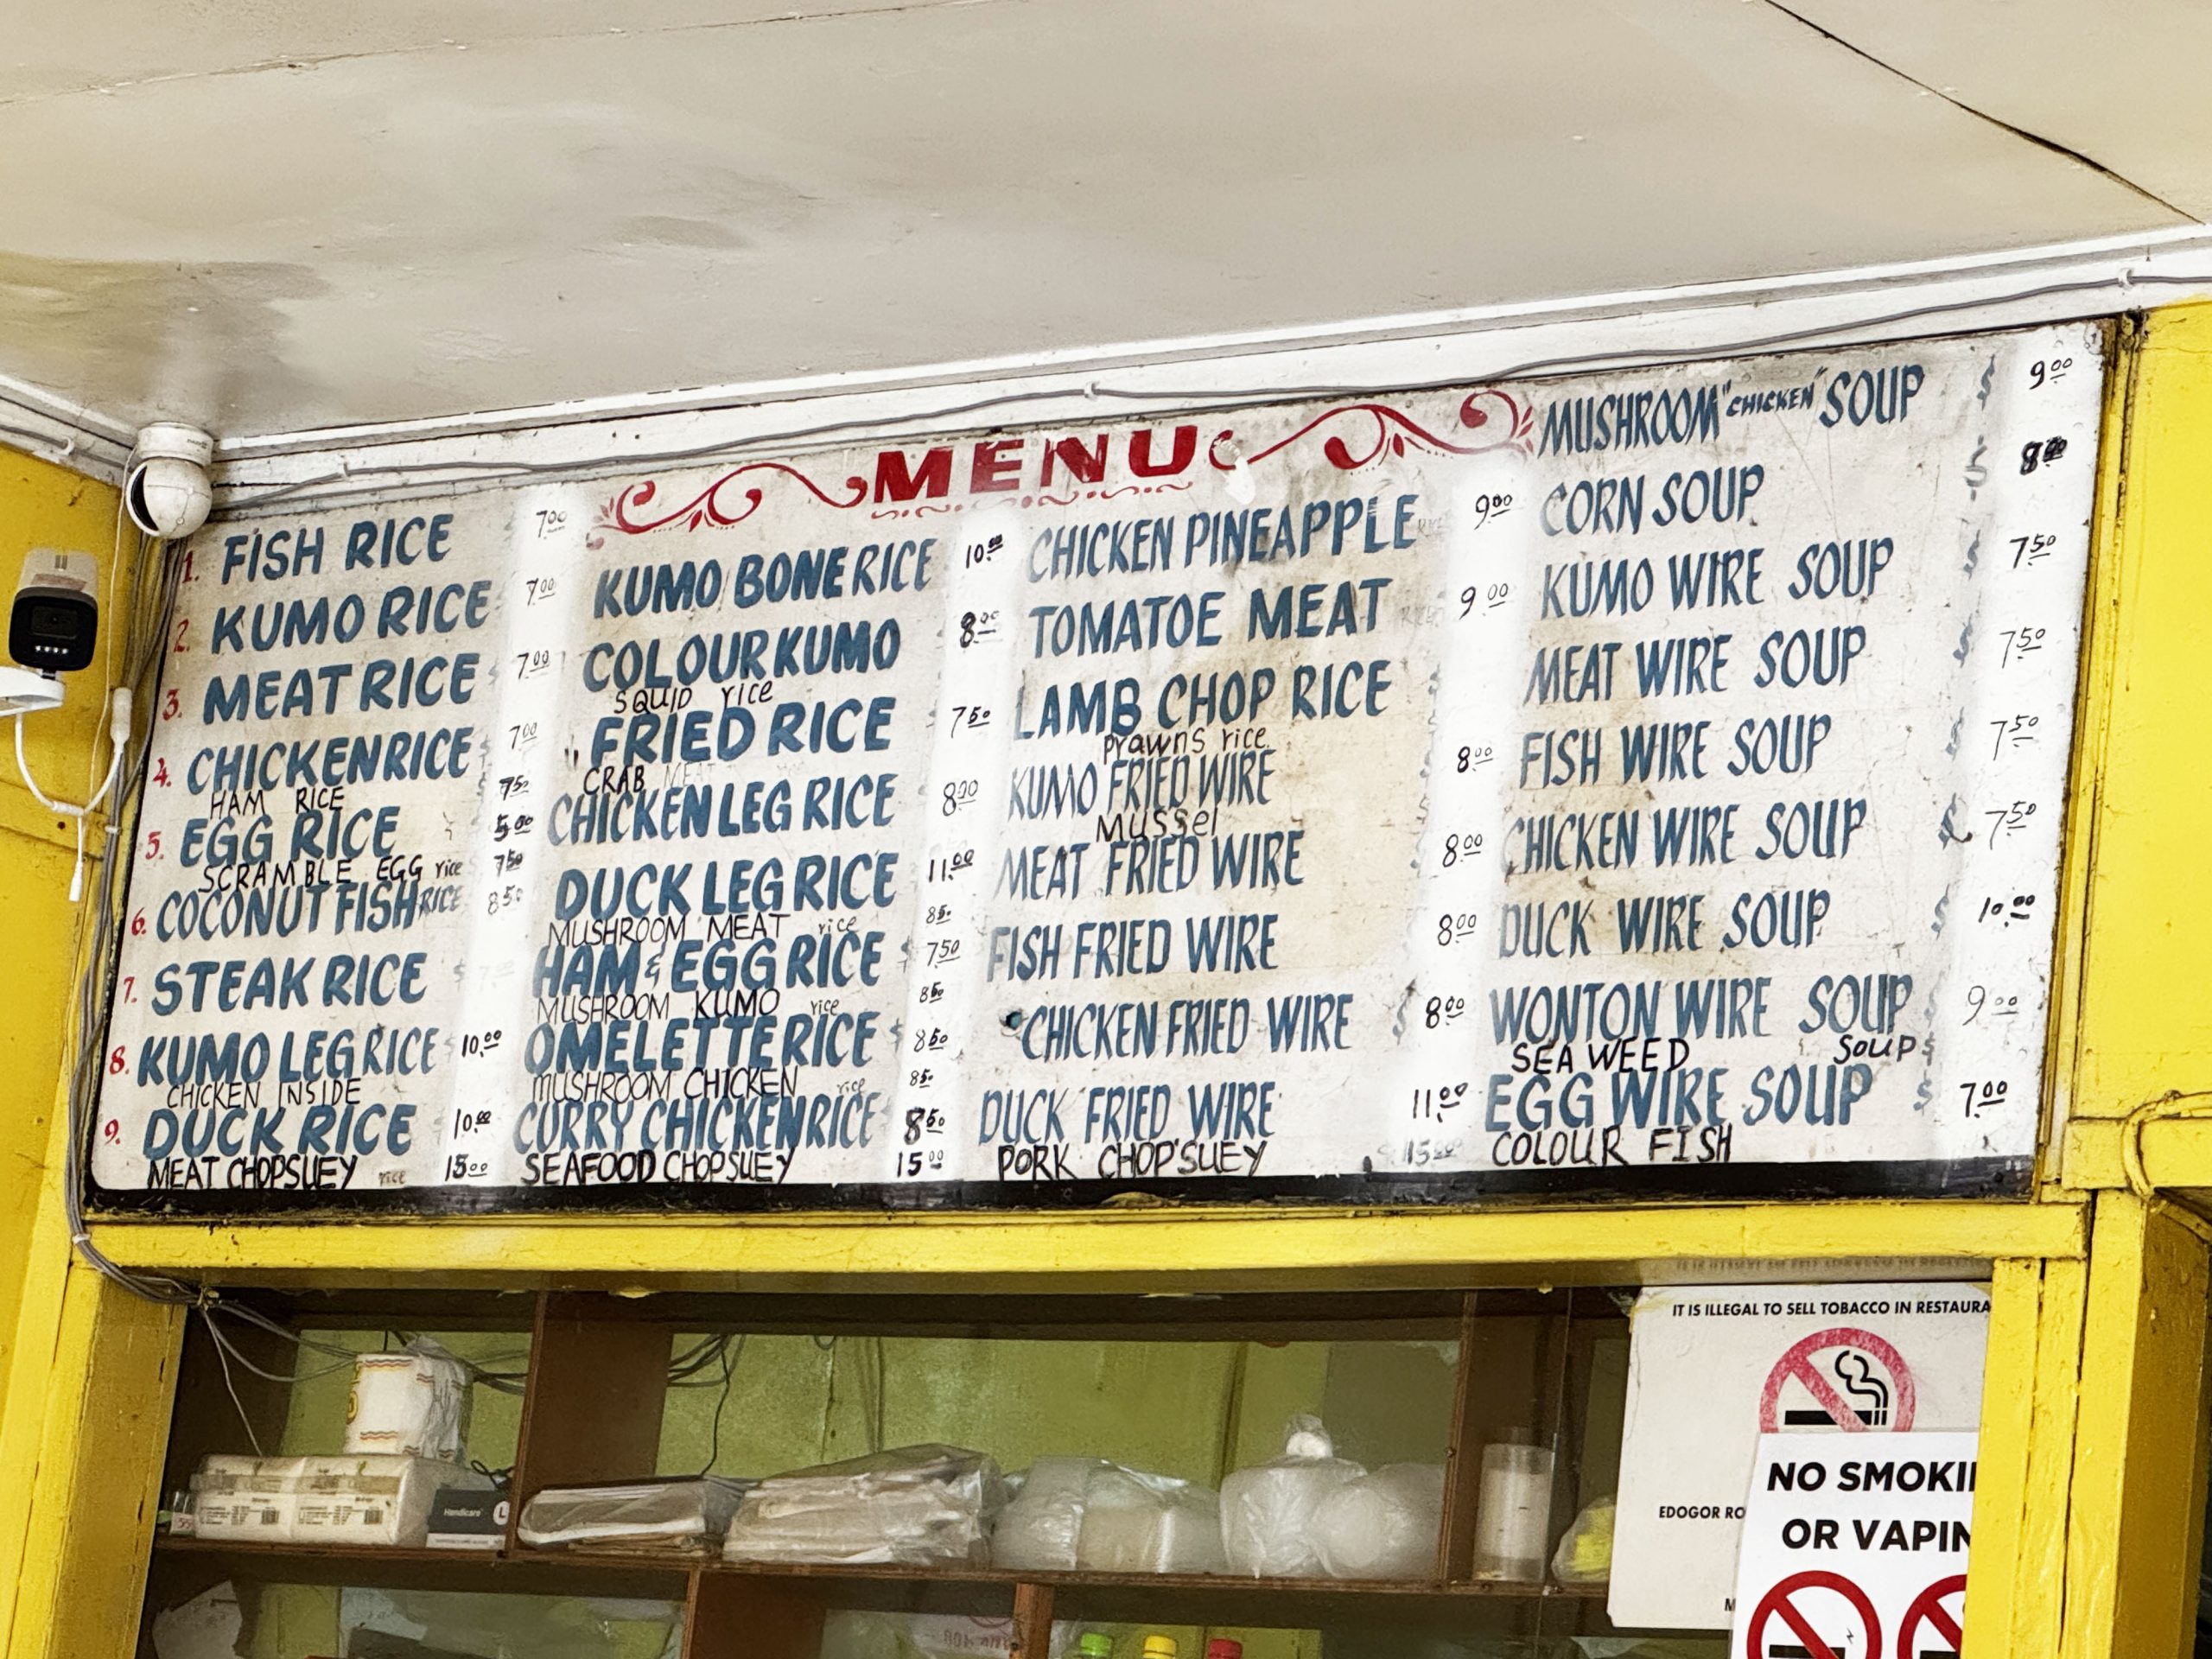 MENU
1. FISH RICE 7.00
2. KUMO RICE 7.00
3. MEAT RICE 7.00
4. CHICKEN RICE 7.00
HAM RICE 7.50
5. EGG RICE 5.00
SCRAMBLE EGG rice 7.50
6. COCONUT FISH RICE 8.50
7. STEAK RICE
8. KUMO LEG RICE 10.00
CHICKEN INSIDE
9. DUCK RICE 10.00
MEAT CHOPSUEY rice 15.00
KUMO BONE RICE 10.00
COLOUR KUMO 8.00
SQUID rice
FRIED RICE 7.50
CRAB MEAT
CHICKEN LEG RICE 8.00
DUCK LEG RICE 11.00
MUSHROOM MEAT rice 8.50
HAM & EGG RICE $ 7.50
MUSHROOM KUMO rice 8.50
OMELETTE RICE $ 8.50
MUSHROOM CHICKEN rice 8.50
CURRY CHICKEN RICE 8.50
SEAFOOD CHOPSUEY 15.00
CHICKEN PINEAPPLE 9.00
TOMATOE MEAT 9.00
LAMB CHOP RICE
prawns rice
KUMO FRIED WIRE 8.00
Mussel
MEAT FRIED WIRE 8.00
FISH FRIED WIRE 8.00
CHICKEN FRIED WIRE $ 8.00
DUCK FRIED WIRE 11.00
PORK CHOPSUEY $ 15.00
MUSHROOM "CHICKEN" SOUP $ 9.00
CORN SOUP $ 8.00
KUMO WIRE SOUP $ 7.50
MEAT WIRE SOUP $ 7.50
FISH WIRE SOUP $ 7.50
CHICKEN WIRE SOUP $ 7.50
DUCK WIRE SOUP $ 10.00
WONTON WIRE SOUP 9.00
SEA WEED SOUP $
EGG WIRE SOUP $ 7.00
COLOUR FISH
IT IS ILLEGAL TO SELL TOBACCO IN RESTAURA
EDOGOR RO
NO SMOKI
OR VAPIN
Handicare L